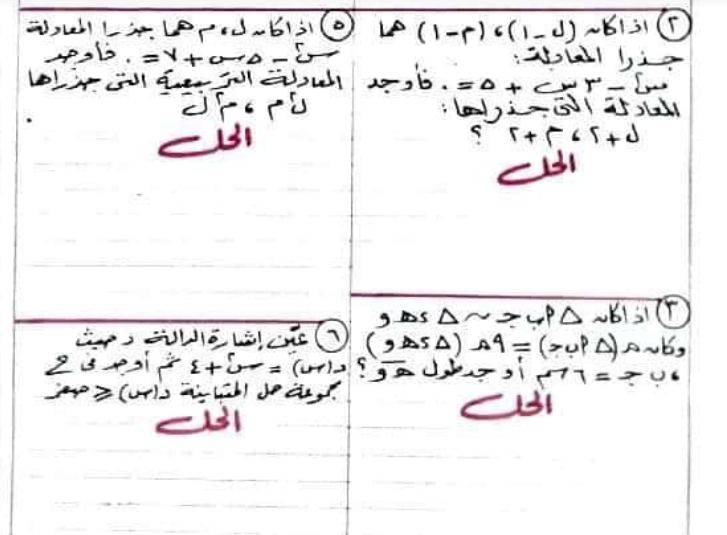 ٢ اذا كان (ل-١)، (م-١) هما
جذرا المعادلة:
س² - ٣س + ٥ = ٠ فأوجد
المعادلة التى جذراها:
ل+٢، م+٢ ؟
الحل
٥ اذا كان ل، م هما جذرا المعادلة
س² - ٥س + ٧ = ٠ فأوجد
المعادلة التربيعية التى جذراها
ل²م، م²ل
الحل
٣ اذا كان △ ٩ب جـ ~ △ ء هـ و
وكان م (△ ٩ب جـ) = ٩ م (△ ء هـ و)
، ب جـ = ٦ سم أوجد طول هـ و ؟
الحل
٦ عيّن إشارة الدالة د حيث
د(س) = س² + ٤ ثم أوجد فى ح
مجموعة حل المتباينة د(س) ≥ صفر
الحل